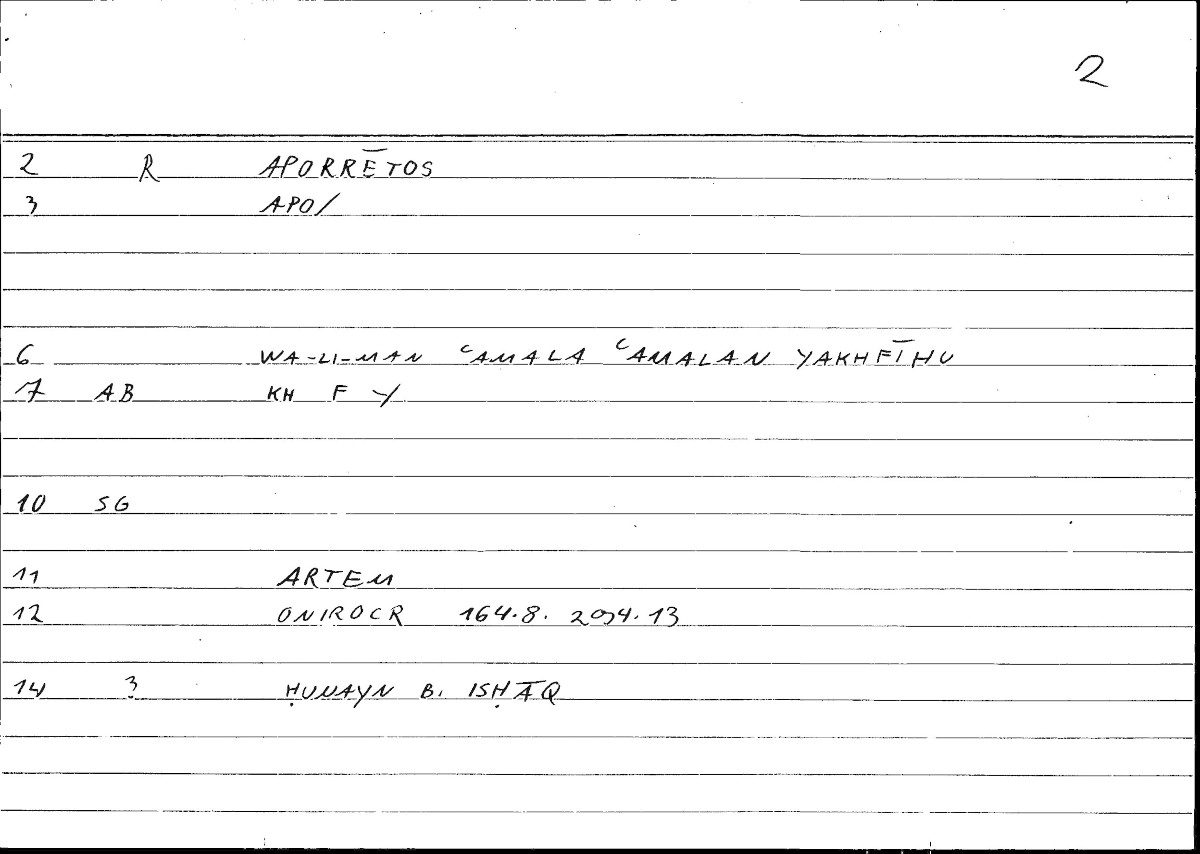 2
2 R APORRĒTOS
3 APO/
6 WA-LI-MAN ʿAMALA ʿAMALAN YAKHFĪHU
7 AB KH F Y
10 SG
11 ARTEM
12 ONIROCR 164.8. 13
14 ḤUNAYN B. ISḤĀQ